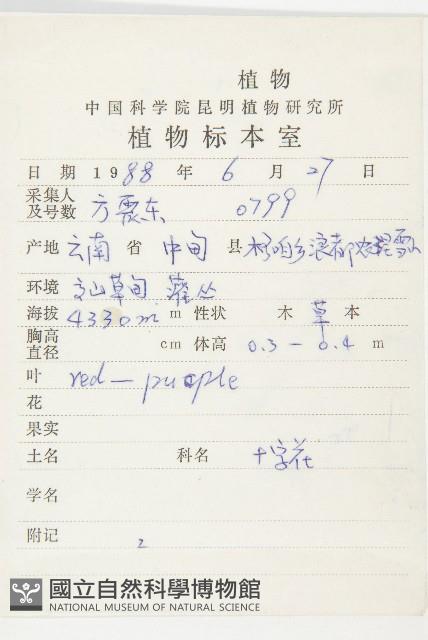 植物
中国科学院昆明植物研究所
植物标本室
日期 1988 年 6 月 27 日
采集人及号数 方震东 0799
产地 云南 省 中甸 县 格咱乡浪都
环境 高山草甸 灌丛
海拔 4330m m 性状 木 草 本
胸高直径 cm 体高 0.3 — 0.4 m
叶 red — purple
花
果实
土名 科名 十字花
学名
附记 2
國立自然科學博物館
NATIONAL MUSEUM OF NATURAL SCIENCE